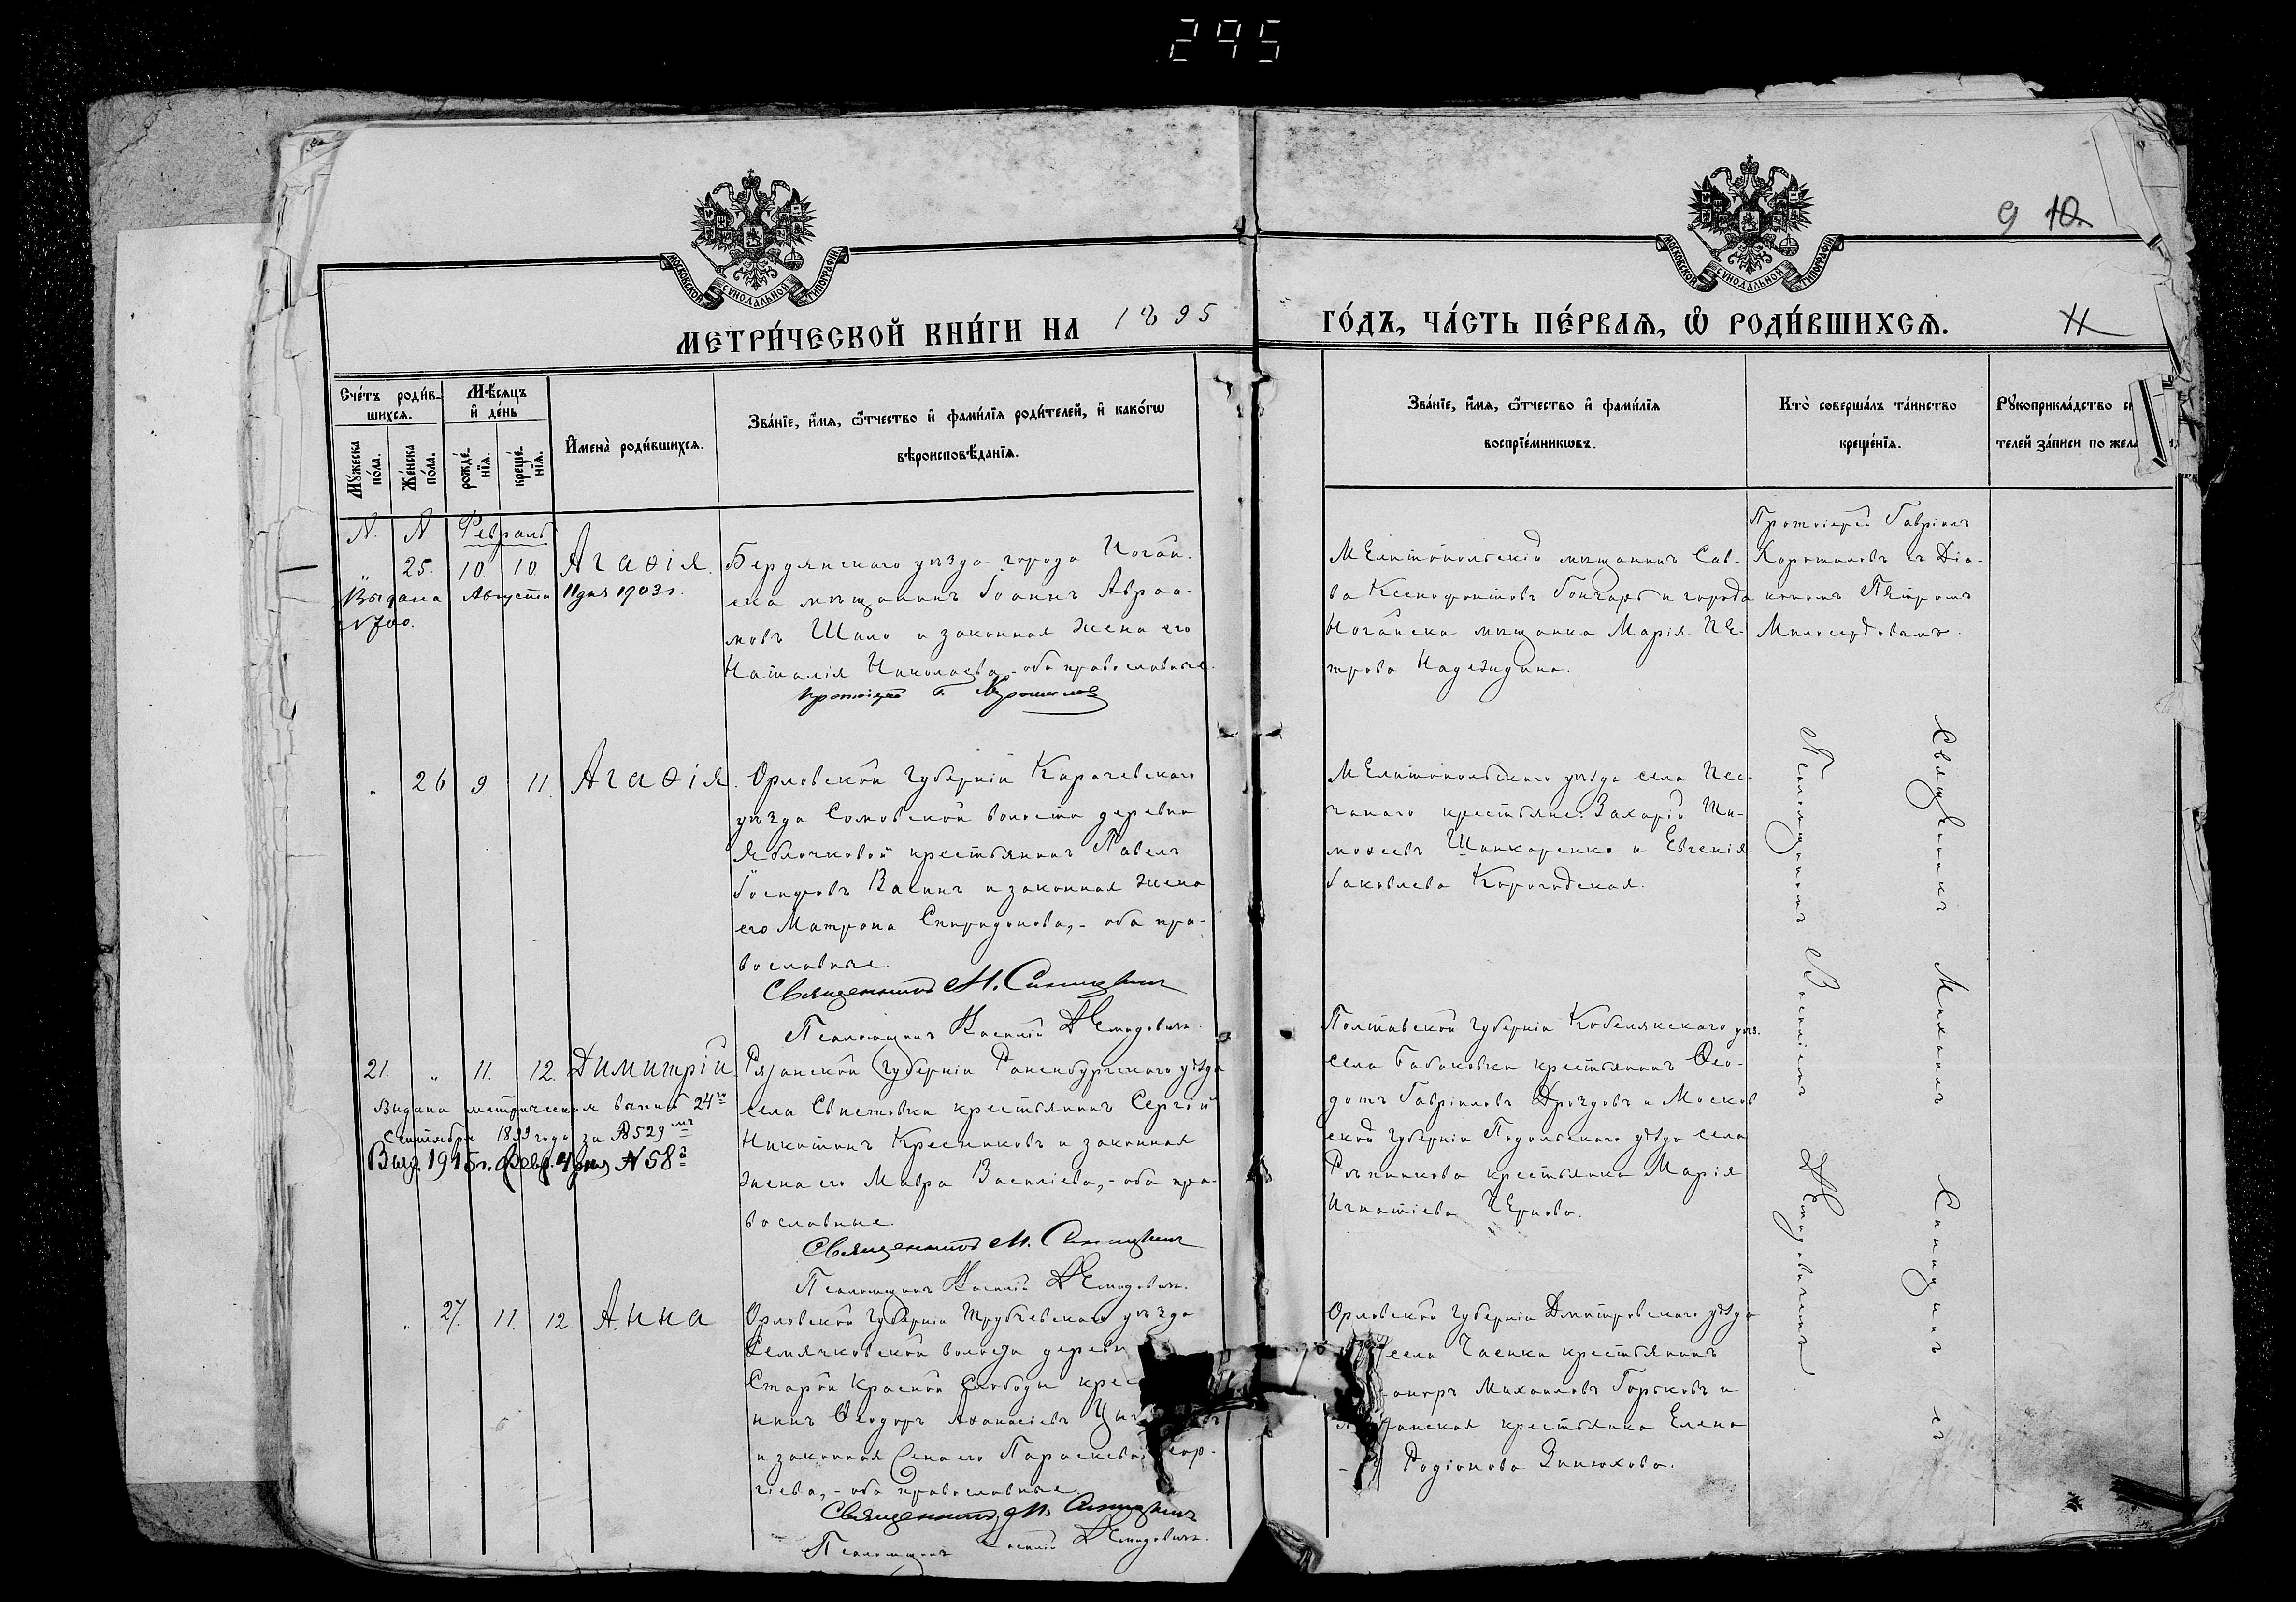 295
МОСКОВСКОЙ СѴНОДАЛЬНОЙ ТИПОГРАФІИ
МОСКОВСКОЙ СѴНОДАЛЬНОЙ ТИПОГРАФІИ
9 10.
МЕТРИ́ЧЕСКОЙ КНИ́ГИ НА 1895
ГО́ДЪ, ЧА́СТЬ ПЕ́РВАѦ, Ѡ҆ РОДИ́ВШИХСѦ.
11
Сче́тъ роди́в-
шихсѧ.
Мꙋ́жеска по́ла.
Же́нска по́ла.
Мѣ́сѧцъ
и҆ де́нь
рожде́-
нїѧ.
креще́-
нїѧ.
И҆мена̀ роди́вшихсѧ.
Зва́нїе, и҆́мѧ, ѻ҆́тчество и҆ фамилїѧ роди́телей, и҆ како́гѡ
вѣроисповѣ́данїѧ.
Зва́нїе, и҆́мѧ, ѻ҆́тчество и҆ фами́лїѧ
воспрїе́мникѡвъ.
Кто̀ соверша́лъ та́инство
креще́нїѧ.
Рꙋкоприкла́дство
телей за́писи по
N. N Февраль
" 25. 10. 10 Агаѳія.
Выдана Августа 11 дня 1903 г.
N 700.
Бердянскаго уѣзда города Ногай-
ска мѣщанинъ Іоаннъ Авраа-
мовъ Шило и законная жена его
Наталія Николаева, - оба православные.
протоіерей Г. Коротиловъ
Мелитопольскій мѣщанинъ Сав-
ва Ксенофонтовъ Гончаръ и города
Ногайска мѣщанка Марія Пе-
трова Надеждина.
Протоіерей Гавріилъ
Коротиловъ съ Діа-
кономъ Петромъ
Милосердовымъ.
" 26 9. 11. Агаѳія.
Орловской губерніи Карачевскаго
уѣзда Сомовской волости деревни
Яблочковой крестьянинъ Павелъ
Іосифовъ Васинъ и законная жена
его Матрона Спиридонова, - оба пра-
вославные.
Священникъ М. Синицынъ
Псаломщикъ Василій Демидовичъ.
Мелитопольскаго уѣзда села Пес-
чанаго крестьяне: Захарій Ти-
моѳеевъ Шинкаренко и Евгенія
Іаковлева Корогодская.
Священникъ Михаилъ Синицынъ съ
Псаломщикомъ Василіемъ Демидовичемъ.
21. " 11. 12. Димитрій
Выдана метрическая выпись 24го
Сентября 1899 года за №529мъ
Выд. 1915 г. Февр. 4 дня №58
Рязанской губерніи Раненбургскаго уѣзда
села Свистовки крестьянинъ Сергій
Никитинъ Кресниковъ и законная
жена его Мавра Василіева, - оба пра-
вославные.
Священникъ М. Синицынъ
Псаломщикъ Василій Демидовичъ.
Полтавской губерніи Кобелякскаго уѣз.
села Бабаковки крестьянинъ Ѳео-
дотъ Гавріиловъ Дроздовъ и Москов
ской губерніи Подольскаго уѣзда села
крестьянка Марія
Игнатіева Чернова.
" 27. 11. 12. Анна
Орловской губерніи Трубчевскаго уѣзда
Семячковской волости деревн
Старой Красной Слободы крес
нинъ Ѳеодоръ Аѳанасіевъ
и законная жена его Параскева
гіева, - оба православные.
Священникъ М. Синицынъ
Псаломщикъ Василій Демидовичъ.
Орловской губерніи Дмитровскаго уѣзда
села крестьянинъ
Михаиловъ Горьковъ и
крестьянка Елена
Родіонова Зинюхова.